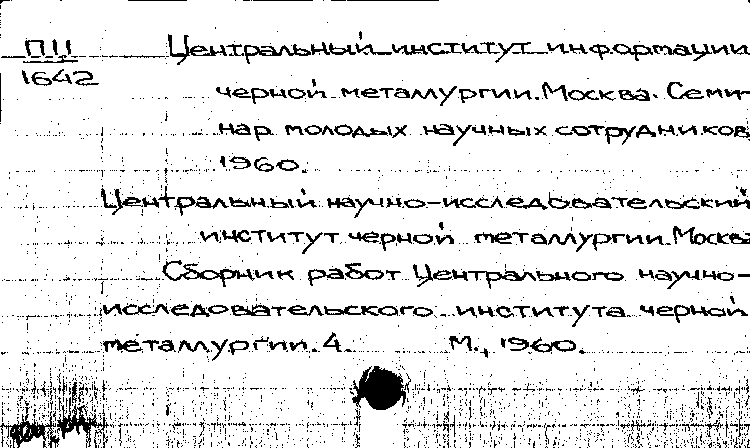 П.Ц Центральный институт информации
1642
черной металлургии. Москва. Семи-
нар молодых научных сотрудников.
1960.
Центральный научно-исследовательский
институт черной металлургии. Москва
Сборник работ Центрального научно-
исследовательского института черной
металлургии. 4. М., 1960.